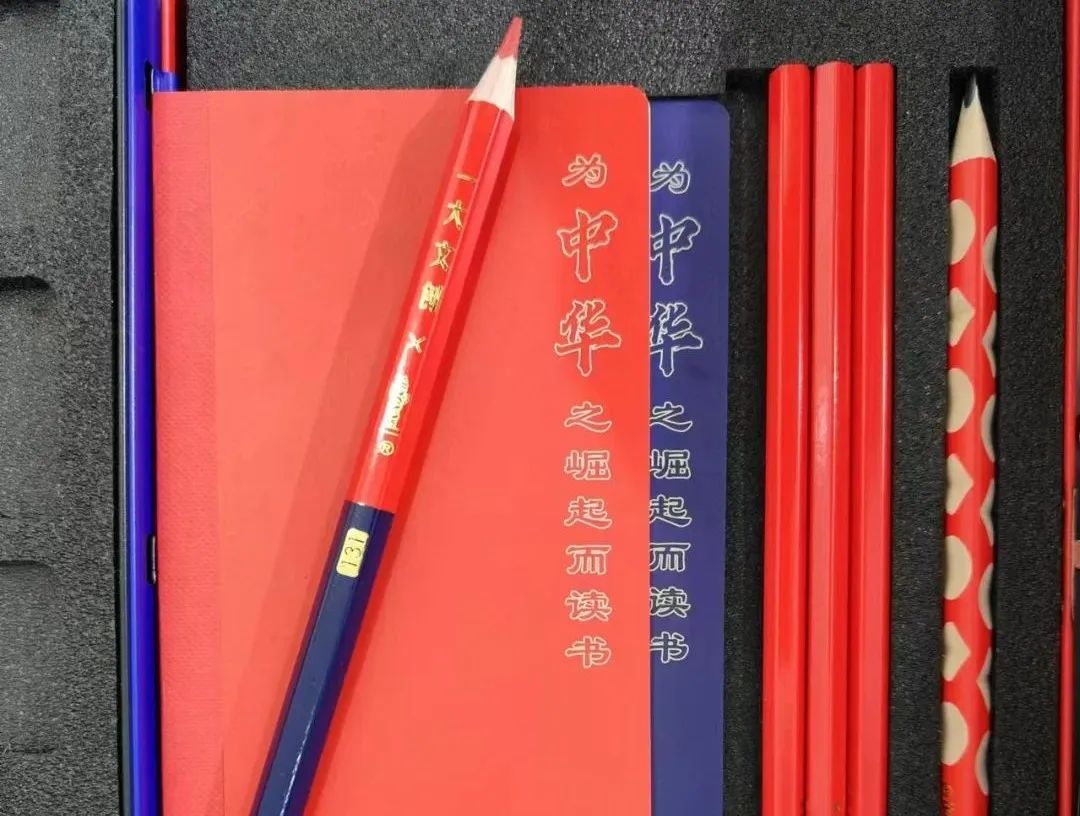 一大文创 ×
131
为中华之崛起而读书
为中华之崛起而读书